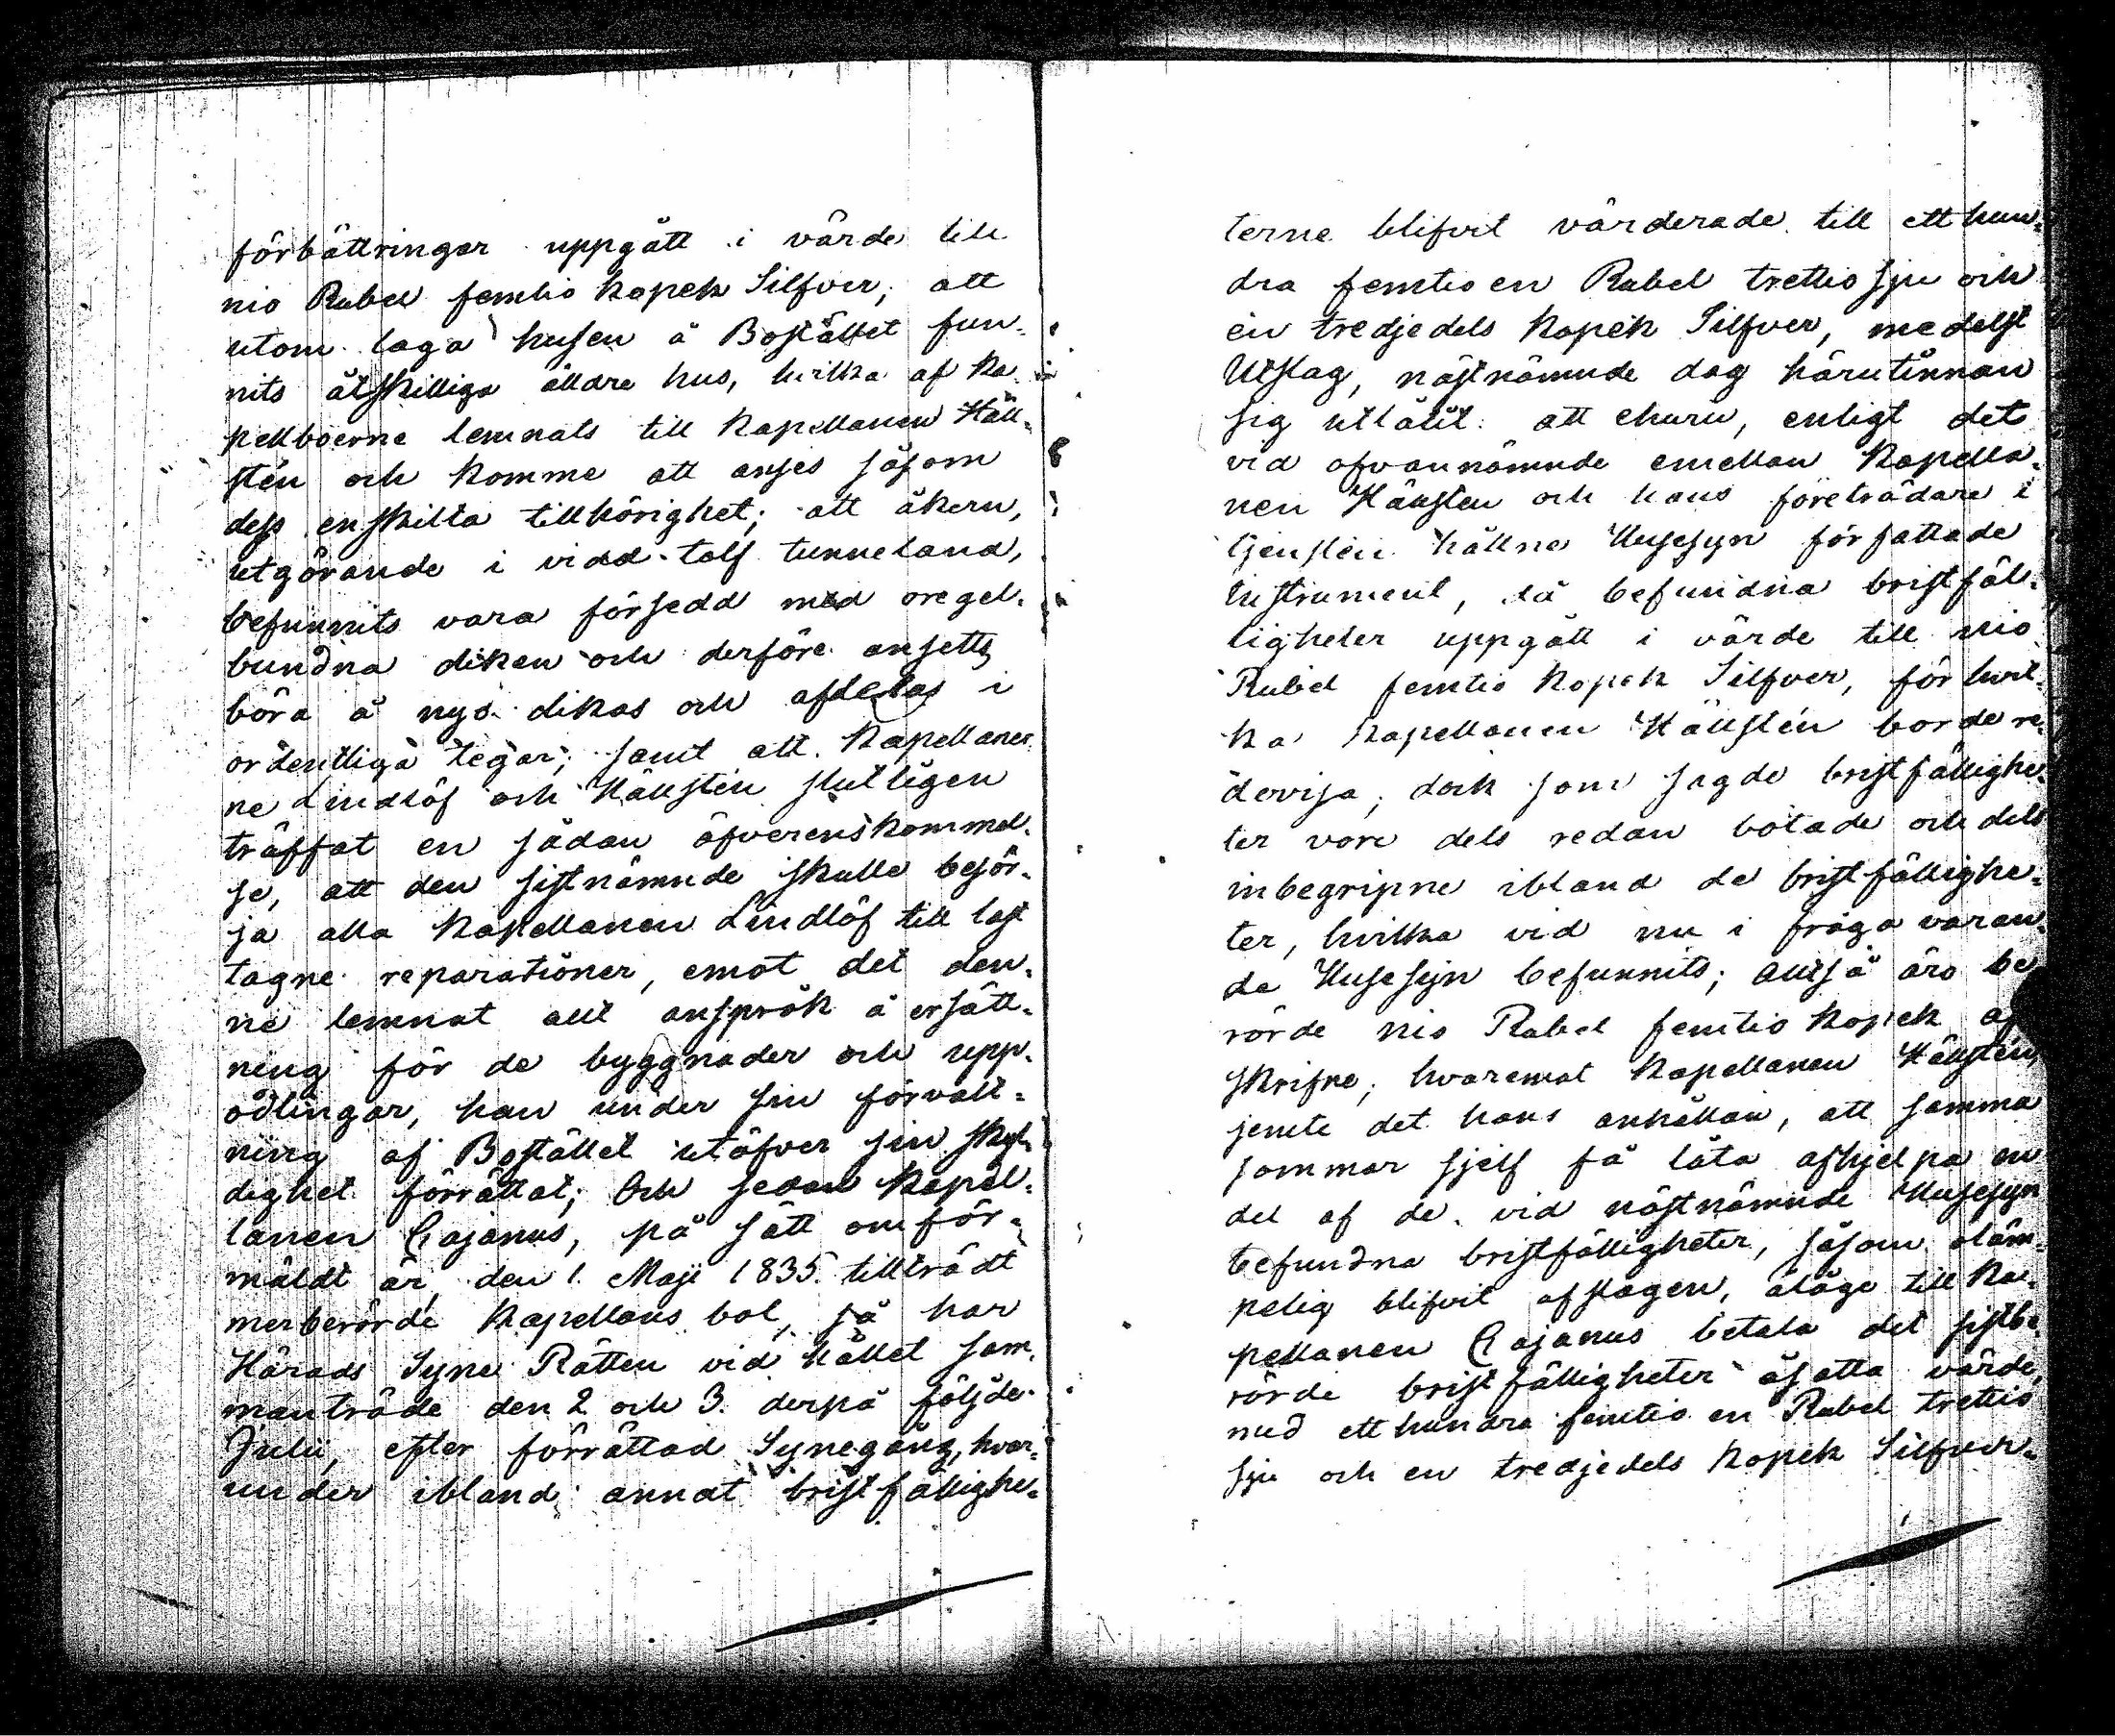 förbättringar uppgått i värde till
nio Rubel femtio kopek Silfver; att
utom laga husen å Bostället fun-
nits åtskilliga äldre hus, hvilka af Ka-
pellboerne lemnats till Kapellanen Häll-
stén och komme att anses såsom
dess enskilta tillhörighet; att åkern,
utgörande i vidd tolf tunneland,
befunnits vara försedd med oregel-
bundna diken och derföre ansetts
böra å nyo dikas och afdelas i
ordentliga tegar; samt att Kapellaner-
ne Lindlöf och Hällstén slutligen
träffat en sådan öfverenskommel-
se, att den sistnämnde skulle besör-
ja alla Kapellanen Lindlöf till last
tagne reparationer, emot det den-
ne lemnat allt anspråk å ersätt-
ning för de byggnader och upp-
odlingar, han under sin förvalt-
ning af Bostället utöfver sin skyl-
dighet förrättat; Och sedan Kapel-
lanen Cajanus, på sätt omför-
mäldt är, den 1. Maji 1835. tillträdt
merberörde Kapellans bol, så har
Härads Syne Rätten vid hållet sam-
manträde den 2 och 3. derpå följde
Julii, efter förrättad Synegång, hvar-
under ibland annat bristfällighe-
terne blifvit värderade till ett hun-
dra femtio en Rubel trettio sju och
en tredjedels kopek Silfver, medelst
Utslag, nästnämnde dag härutinnan
sig utlåtit: att ehuru, enligt det
vid ofvannämnde emellan Kapella-
nen Hällsten och hans företrädare i
tjensten hållne Husesyn författade
Instrument, då befundna bristfäl-
ligheter uppgått i värde till nio
Rubel femtio kopek Silfver, för hvil-
ka Kapellanen Hällstén borde re-
dovisa, dock som sagde bristfällighe-
ter vore dels redan botade och dels
inbegripne ibland de bristfällighe-
ter, hvilka vid nu i fråga varan-
de Husesyn befunnits; altså äro be-
rörde nio Rubel femtio kopek af-
skrifne; hvaremot Kapellanen Hällstén,
jemte det hans anhållan, att samma
sommar sjelf få låta afhjelpa en
del af de vid nästnämnde Husesyn
befundna bristfälligheter, såsom oläm-
pelig blifvit afslagen, ålåge till Ka-
pellanen Cajanus betala det sistbe-
rörde bristfälligheter åsatta värde,
med ett hundra femtio en Rubel trettio
sju och en tredjedels kopek Silfver.